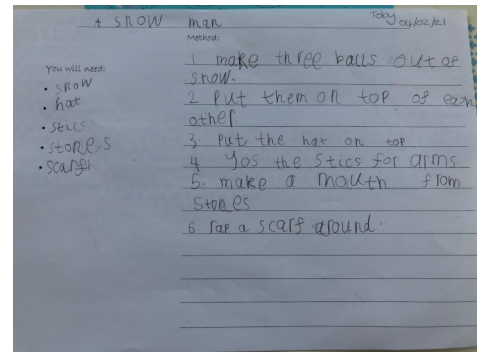 + snow man
Toby 04/02/21
You will need:
• snow
• hat
• stics
• stones
• scarf
Method:
1 make three balls out of
snow.
2 Put them on top of each
other.
3. Put the hat on top
4 yos the stics for arms
5. make a mouth from
stones
6 rap a scarf around.